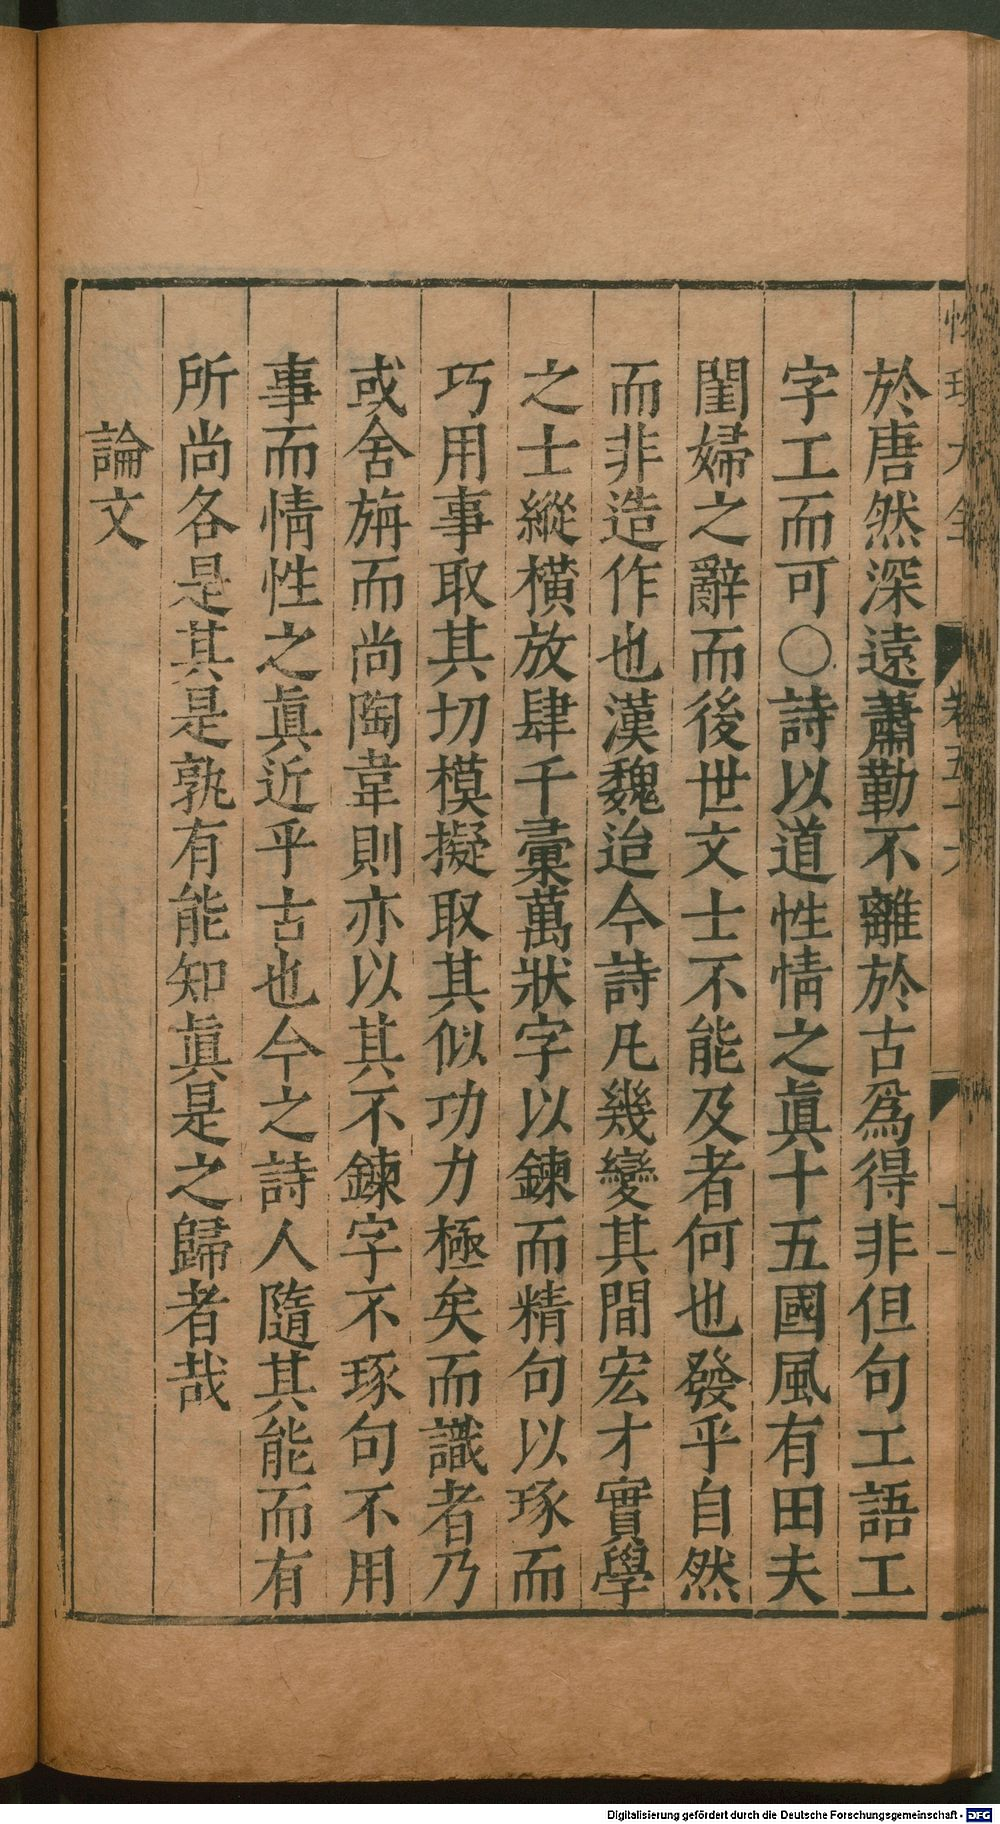 於唐然深遠蕭勤不離於古爲得非但句工語工
字工而可○詩以道性情之眞十五國風有田夫
閨婦之辭而後世文士不能及者何也發乎自然
而非造作也漢魏迨今詩凡幾變其間宏才實學
之士縱横放肆千彚萬狀字以鍊而精句以琢而
巧用事取其切模擬取其似功力極矣而識者乃
或舍旃而尚陶韋則亦以其不鍊字不琢句不用
事而情性之眞近乎古也今之詩人隨其能而有
所尚各是其是孰有能知眞是之歸者哉
論文
Digitalisierung gefördert durch die Deutsche Forschungsgemeinschaft - DFG